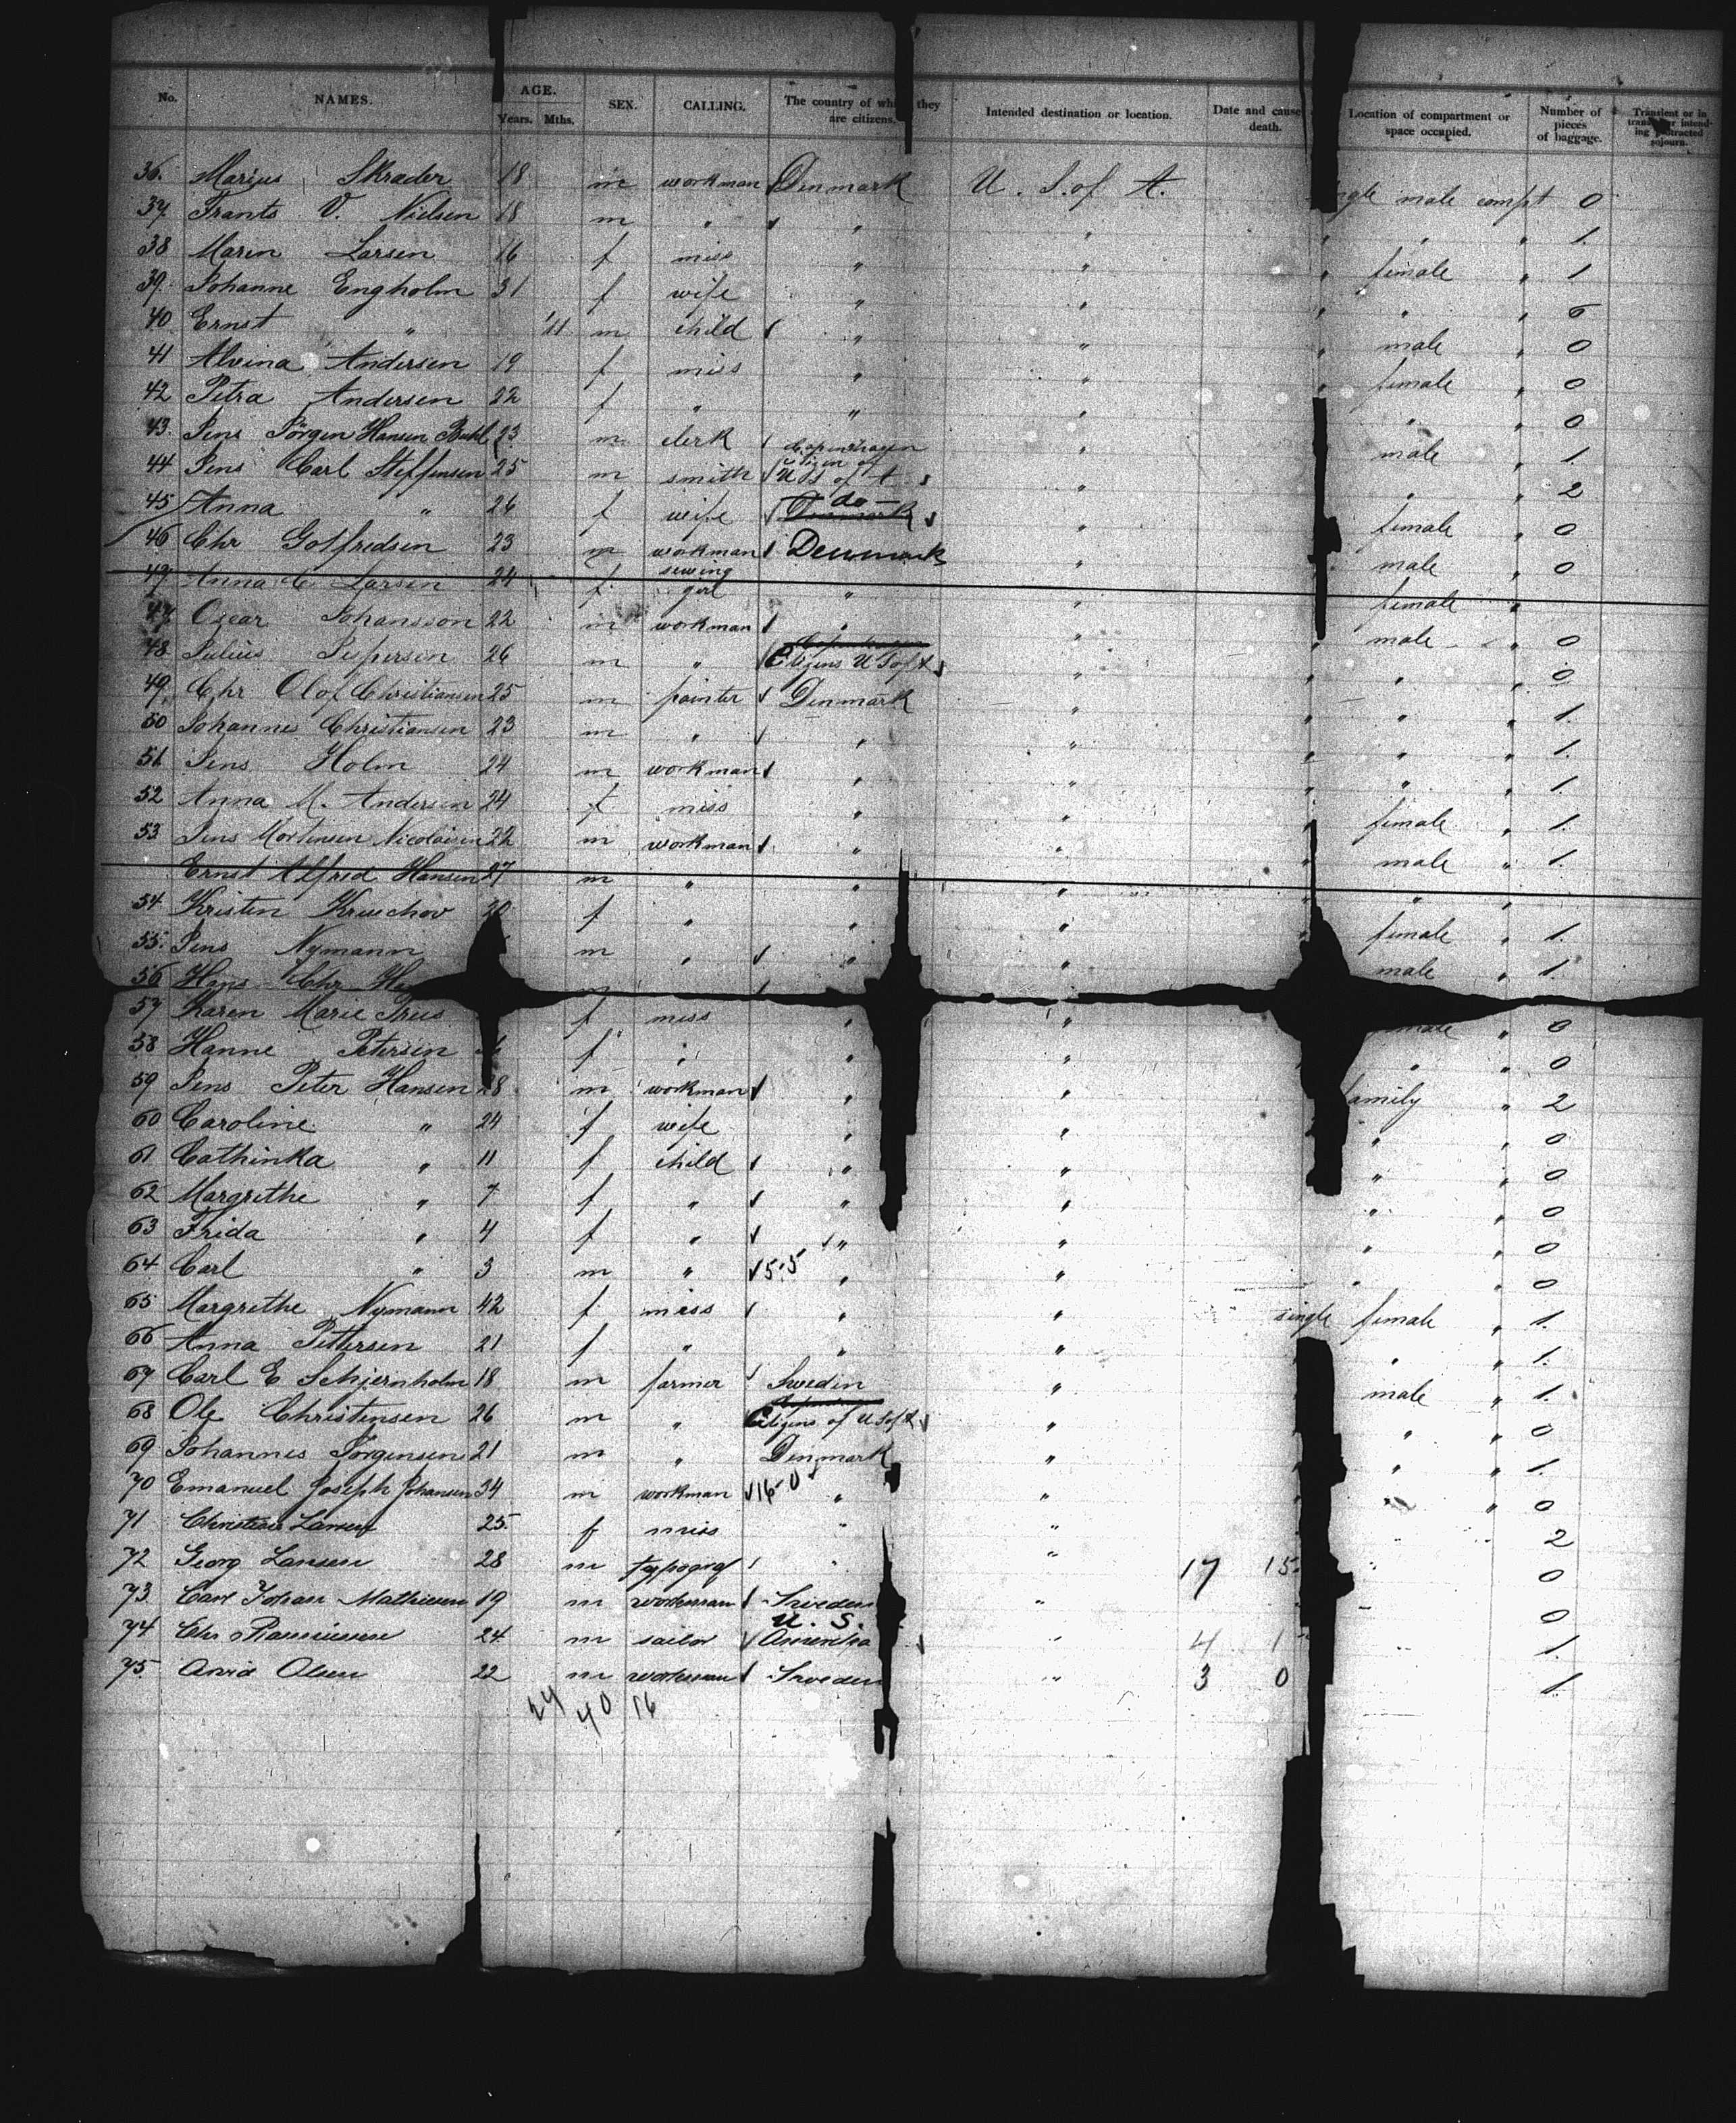 No. NAMES. AGE. Years. Mths. SEX. CALLING. The country of whi they are citizens. Intended destination or location. Date and cause death. Location of compartment or space occupied. Number of pieces of baggage. Transient or in intend- ing protracted sojourn.
36. Marius Skrader 18 m workman Denmark U. S. of A. ngle male compt 0
37. Frants V. Nielsen 18 m " " " " " " 1.
38 Maren Larsen 16 f miss " " " female " 1
39. Johanne Engholm 31 f wife " " " " " 6
40 Ernst " 11 m child " " " male " 0
41 Alvina Andersen 19 f miss " " " female " 0
42 Petra Andersen 22 f " " " " " 0
43. Jens Jörgen Hansen Buhl 23 m clerk Copenhagen " male " 1.
44 Jens Carl Steffensen 25 m smith Citizen of U S of A " " " 2
45 Anna " 26 f wife do Denmark " female " 0
46 Chr Gotfredsen 23 m workman Denmark " male " 0
47 Anna C Larsen 24 f. sewing girl " " female "
47 Oscar Johansson 22 m workman " " male " 0
48 Julius Jespersen 26 m " Citizens U S of A " " " 0
49. Chr Olof Christiansen 25 m painter Denmark " " " " 1.
50 Johannes Christiansen 23 m " " " " " " 1.
51 Jens Holm 24 m workman " " " " " 1.
52 Anna M. Andersen 24 f miss " " " female " 1.
53 Jens Mortensen Nicolaisen 22 m workman " " " male " 1.
Ernst Alfred Hansen 27 m " " " " " "
54 Kristen 20 f " " " female " 1.
55. Jens Nymann m " " " male " 1.
56 Hans Chr m
57 Karen Marie f miss " " " 0
58 Hanne Petersen f " " " " " 0
59 Jens Peter Hansen 28 m workman " " amily " 2
60 Caroline " 24 f wife " " " " 0
61 Cathinka " 11 f child " " " " 0
62 Margrethe " 7 f " " " " " 0
63 Frida " 4 f " " " " " 0
64 Carl " 3 m " 5.5 " " " " 0
65 Margrethe Nymann 42 f miss " " single female " 1.
66 Anna Pettersen 21 f " " " " " 1.
67 Carl E Schjernholm 18 m farmer Sweden " male " 1.
68 Ole Christensen 26 m " Citizens of U S of A " " " 0
69 Johannes Jörgensen 21 m " Denmark " " " 1.
70 Emanuel Joseph Johansen 34 m workman 16-0 " " " 0
71 Larsen 25. f miss " " " 2
72 Georg Larsen 28 m typogrof " " 17 15. 0
73. Carl Johan Mathiesen 19 m workman Sweden " 0
74 Chr Rasmussen 24 m sailor U. S. America " 4 1 1.
75. Arvid Olsen 22 m workman Sweden " 3 0 1
24 40 16